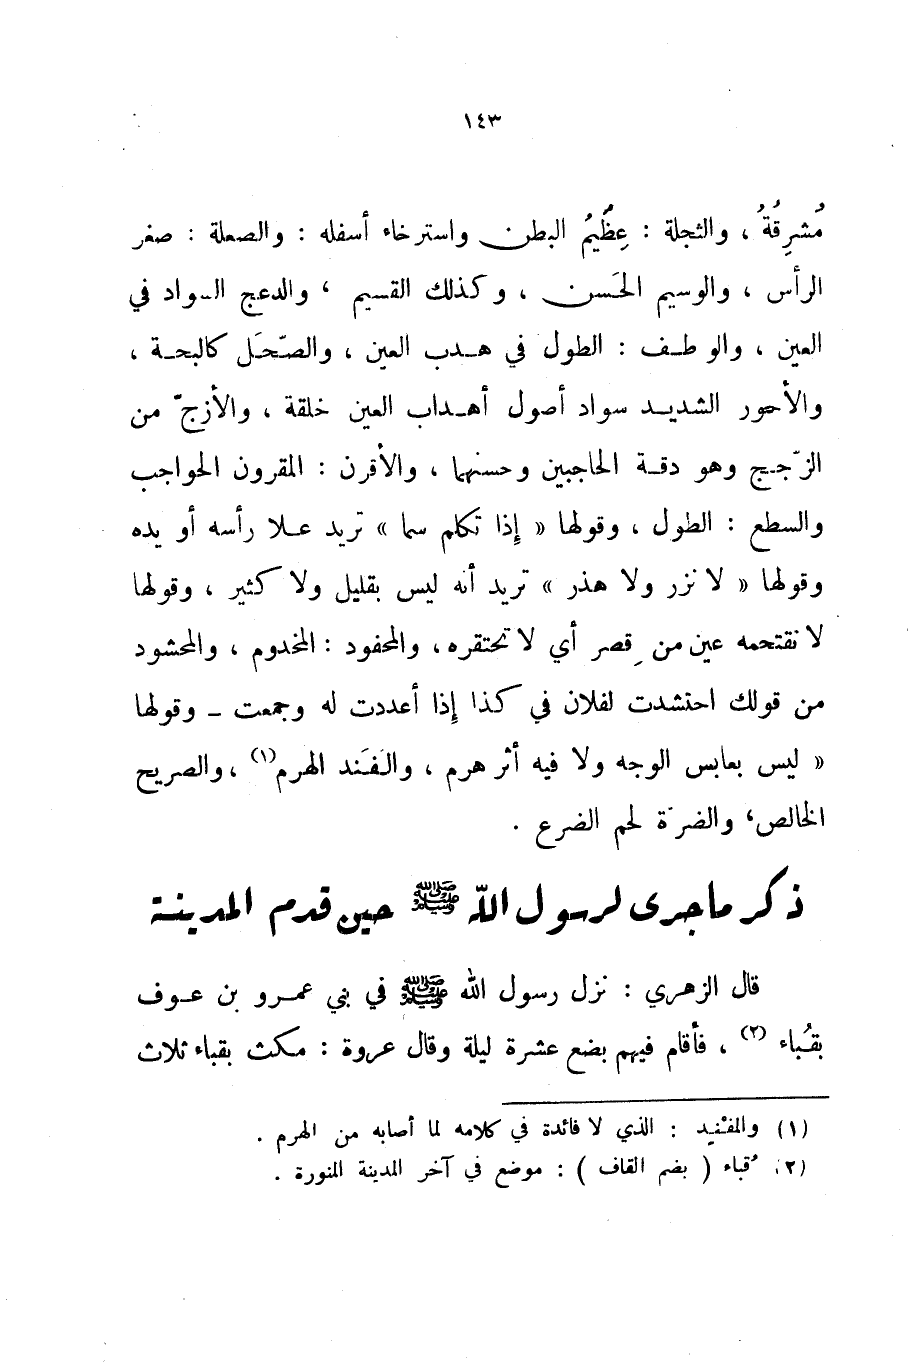 ١٤٣
مُشرِقُةُ ، والثجلة : عِظَيمُ البطن واسترخاء أسفله : والصعلة : صغر
الرأس ، والوسيم الحَسن ، وكذلك القسيم ، والدعج السواد في
العين ، والوطف : الطول في هدب العين ، والصّحَل كالبحة ،
والأحور الشديد سواد أصول أهداب العين خلقة ، والأزجّ من
الزّجج وهو دقة الحاجبين وحسنهما ، والأقرن : المقرون الحواجب
والسطع : الطول ، وقولها « إذا تكلم سما » تريد علا رأسه أو يده
وقولها « لا نزر ولا هذر » تريد أنه ليس بقليل ولا كثير ، وقولها
لا نقتحمه عين من قصر أي لا تحتقره ، والمحفود : المخدوم ، والمحشود
من قولك احتشدت لفلان في كذا إذا أعددت له وجمعت ــ وقولها
« ليس بعابس الوجه ولا فيه أثر هرم ، والفَنَد الهرم(١) ، والصريح
الخالص ، والضرّة لحم الضرع .
ذكر ماجرى لرسول اللّه ﷺ حين قدم المدينة
قال الزهري : نزل رسول الله ﷺ في بني عمرو بن عوف
بقُباء (٢) ، فأقام فيهم بضع عشرة ليلة وقال عروة : مكث بقباء ثلاث
(١) والمفنيد : الذي لا فائدة في كلامه لما أصابه من الهرم .
(٢) قُباء ( بضم القاف ) : موضع في آخر المدينة المنورة .